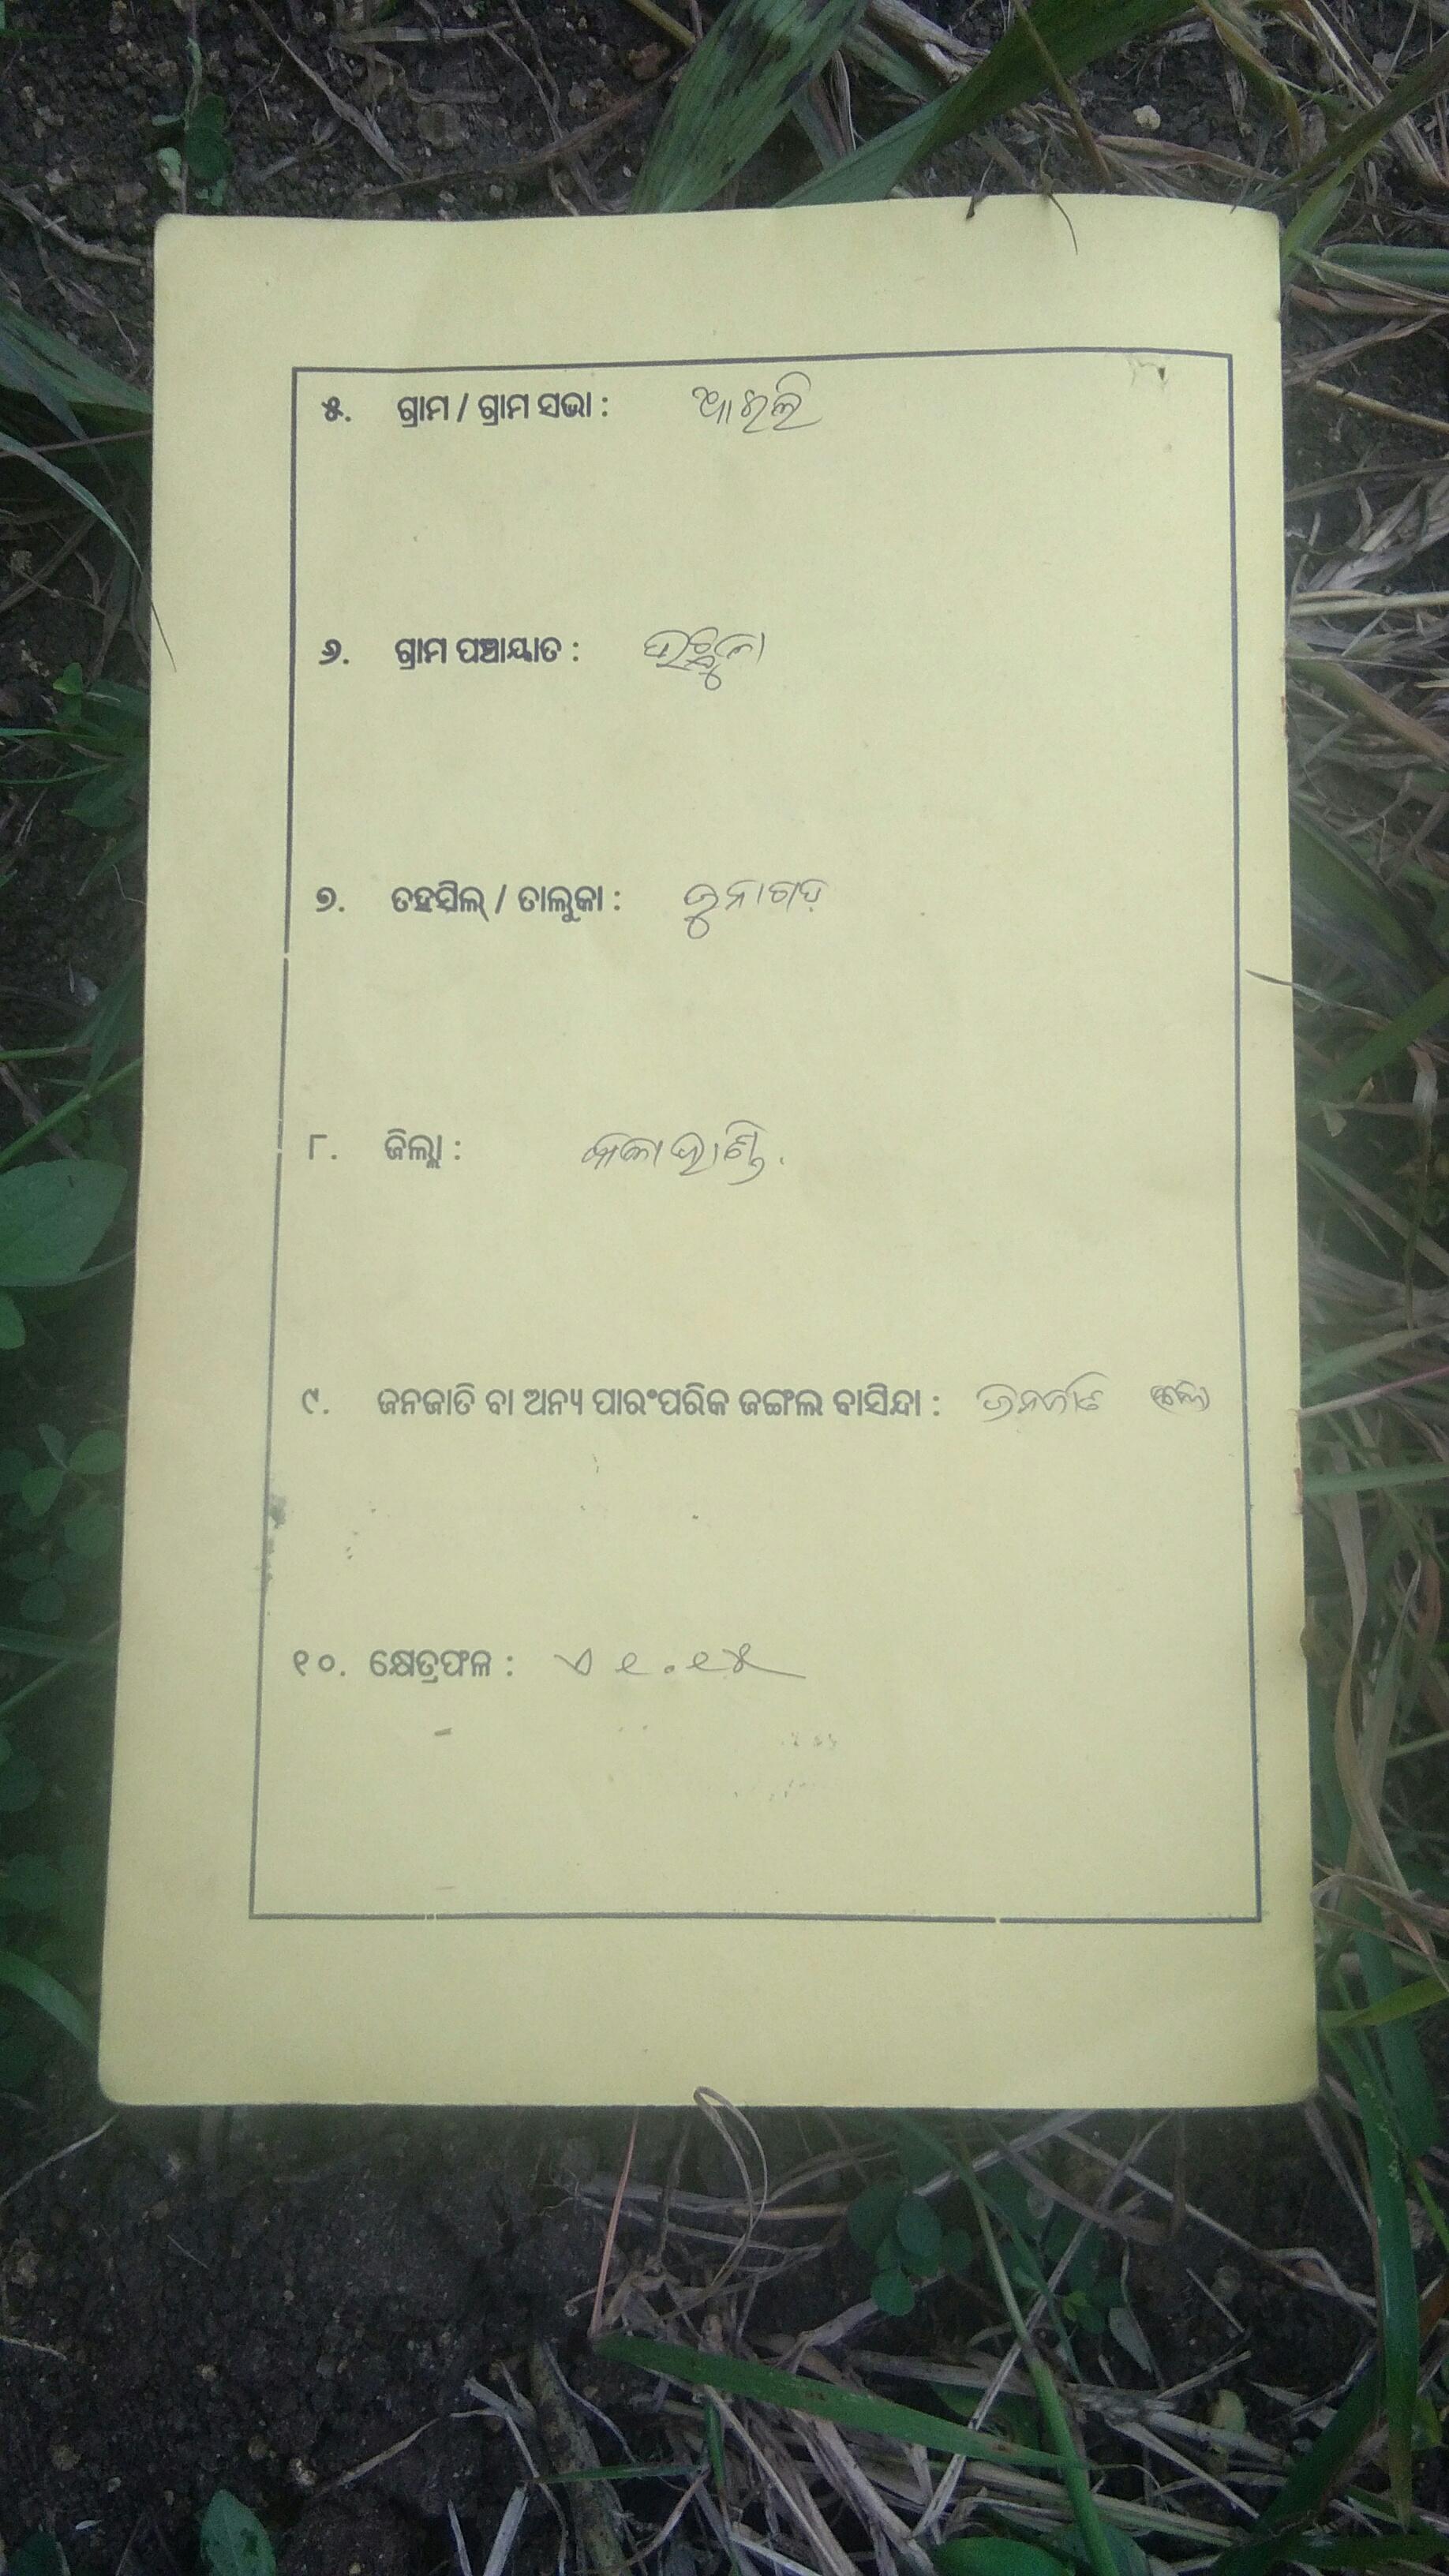 ୫. ଗ୍ରାମ / ଗ୍ରାମ ସଭା :
୬. ଗ୍ରାମ ପଞ୍ଚାୟାତ :
୭. ତହସିଲ୍ / ତାଲୁକା : ଜୁନାଗଡ଼
୮. ଜିଲ୍ଲା : କଳାହାଣ୍ଡି.
୯. ଜନଜାତି ବା ଅନ୍ୟ ପାରଂପରିକ ଜଙ୍ଗଲ ବାସିନ୍ଦା : ଜନଜାତି
୧୦. କ୍ଷେତ୍ରଫଳ : ଏ ୧.୧୫